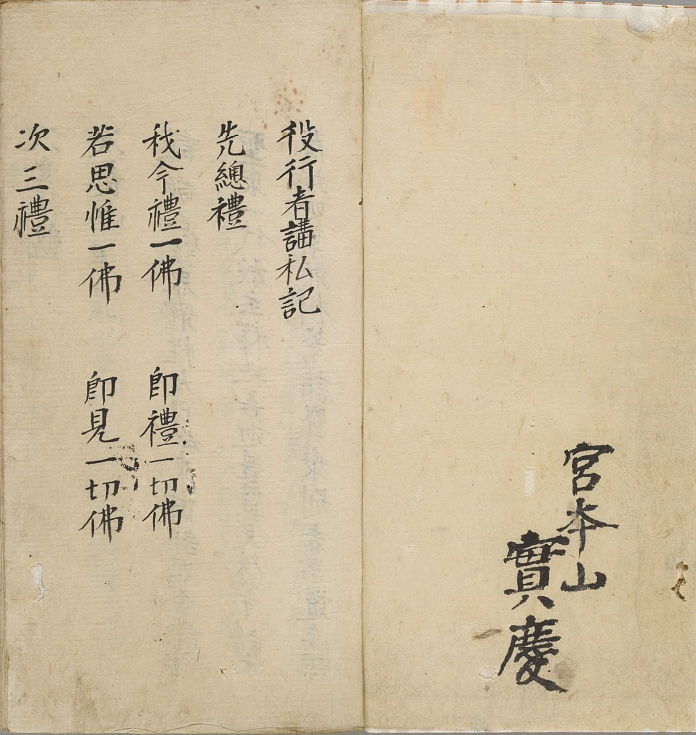 宮本山
實慶
役行者講私記
先總禮
我今禮一佛　即禮一切佛
若思惟一佛　即見一切佛
次三禮